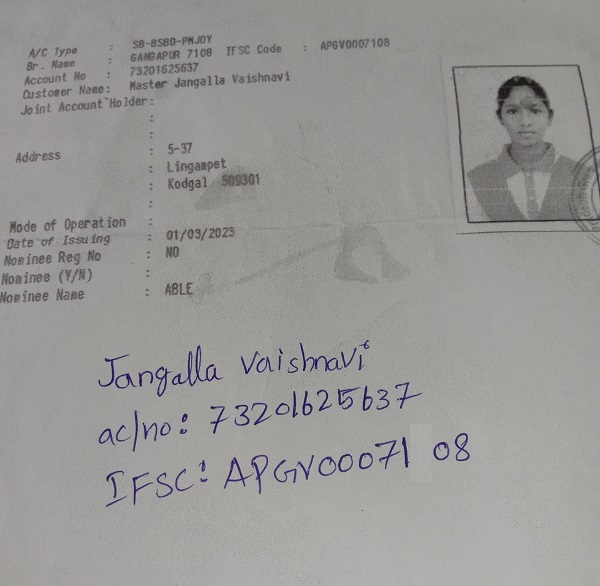 A/C Type : SB-BSBD-PMJDY
Br. Name : GANGAPUR 7108 IFSC Code : APGV0007108
Account No : 73201625637
Customer Name: Master Jangalla Vaishnavi
Joint Account Holder:
:
:
Address : 5-37
: Lingampet
: Kodgal 509301
:
Mode of Operation :
Date of Issuing : 01/03/2023
Nominee Reg No : NO
Nominee (Y/N) :
Nominee Name : ABLE
Jangalla Vaishnavi
ac/no: 73201625637
IFSC: APGV0007108